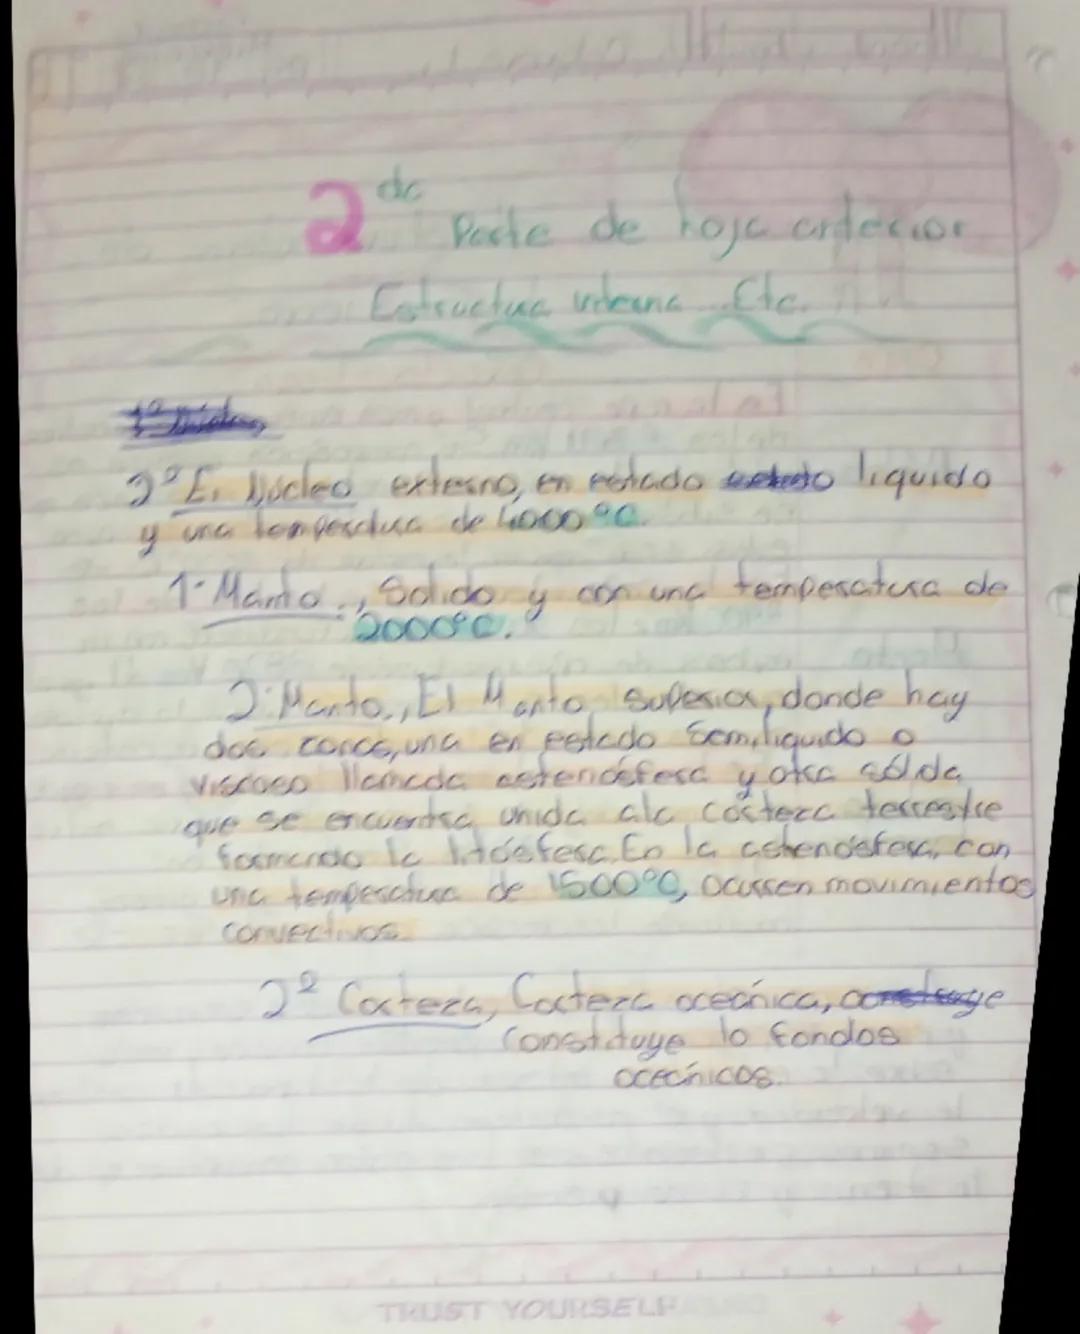 2 da Parte de hoja anterior
Estructura interna Etc.
2º El Núcleo externo, en estado liquido
y una temperatura de 4000ºC.
1· Manto., Solido y con una temperatura de
2000ºC.
2· Manto., El Manto Superior, donde hay
dos capas, una en estado Semiliquido o
viscoso llamada astenósfera y otra sólida
que se encuentra unida ala Corteza terrestre
formando la litósfera. En la astenosfera, con
una temperatura de 1500ºC, ocurren movimientos
convectivos.
2º Corteza, Corteza oceánica,
Constituye lo fondos
oceánicos.
TRUST YOURSELF